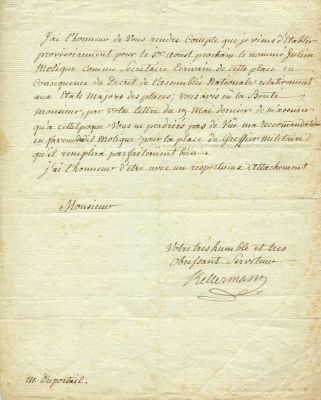 J'ai l'honneur de Vous rendre Compte que je viens d'Etablir
provisoirement pour le 1er aoust prochain le nommé Julien
Molique comme Secrétaire Ecrivain de cette place en
Consequence du Decret de l'assemblée Nationale relativement
aux Etats Majors des places; vous avés eu la Bonté
monsieur, par votre lettre du 19. Mai dernier de m'assurer
qu'a cette Epoque Vous ne perdriés pas de Vue ma recommandation
en faveur dudit Molique pour la place de Greffier militaire
qu'il remplira parfaitement bien.
j'ai l'honneur d'etre avec un respectueux attachement
Monsieur
Votre trés humble et tres
obeissant Serviteur
Kellermann
M. Duportail.